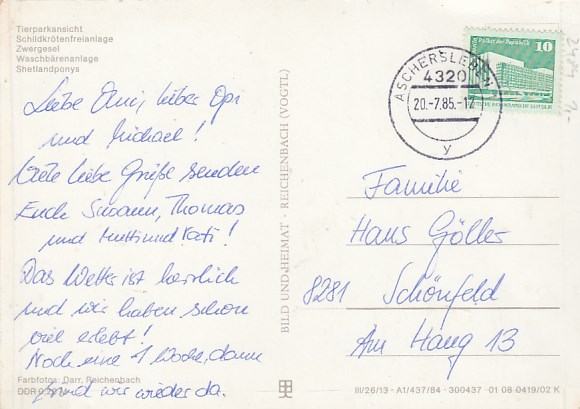 Tierparkansicht
Schildkrötenfreianlage
Zwergesel
Waschbärenanlage
Shetlandponys
Liebe Omi, lieber Opi
und Michael!
Viele liebe Grüße senden
Euch Susann, Thomas
und Mutti und Kati!
Das Wetter ist herrlich
und wir haben schon
viel erlebt!
Noch eine 1 Woche, dann
sind wir wieder da.
Farbfotos: Darr, Reichenbach
DDR
BILD UND HEIMAT · REICHENBACH (VOGTL)
ASCHERSLEBEN
4320
20.-7.85.-12
y
Palast der Republik
10
Familie
Hans Göller
8281 Schönfeld
Am Hang 13
III/26/13 · A1/437/84 · 300437 · 01 08 0419/02 K